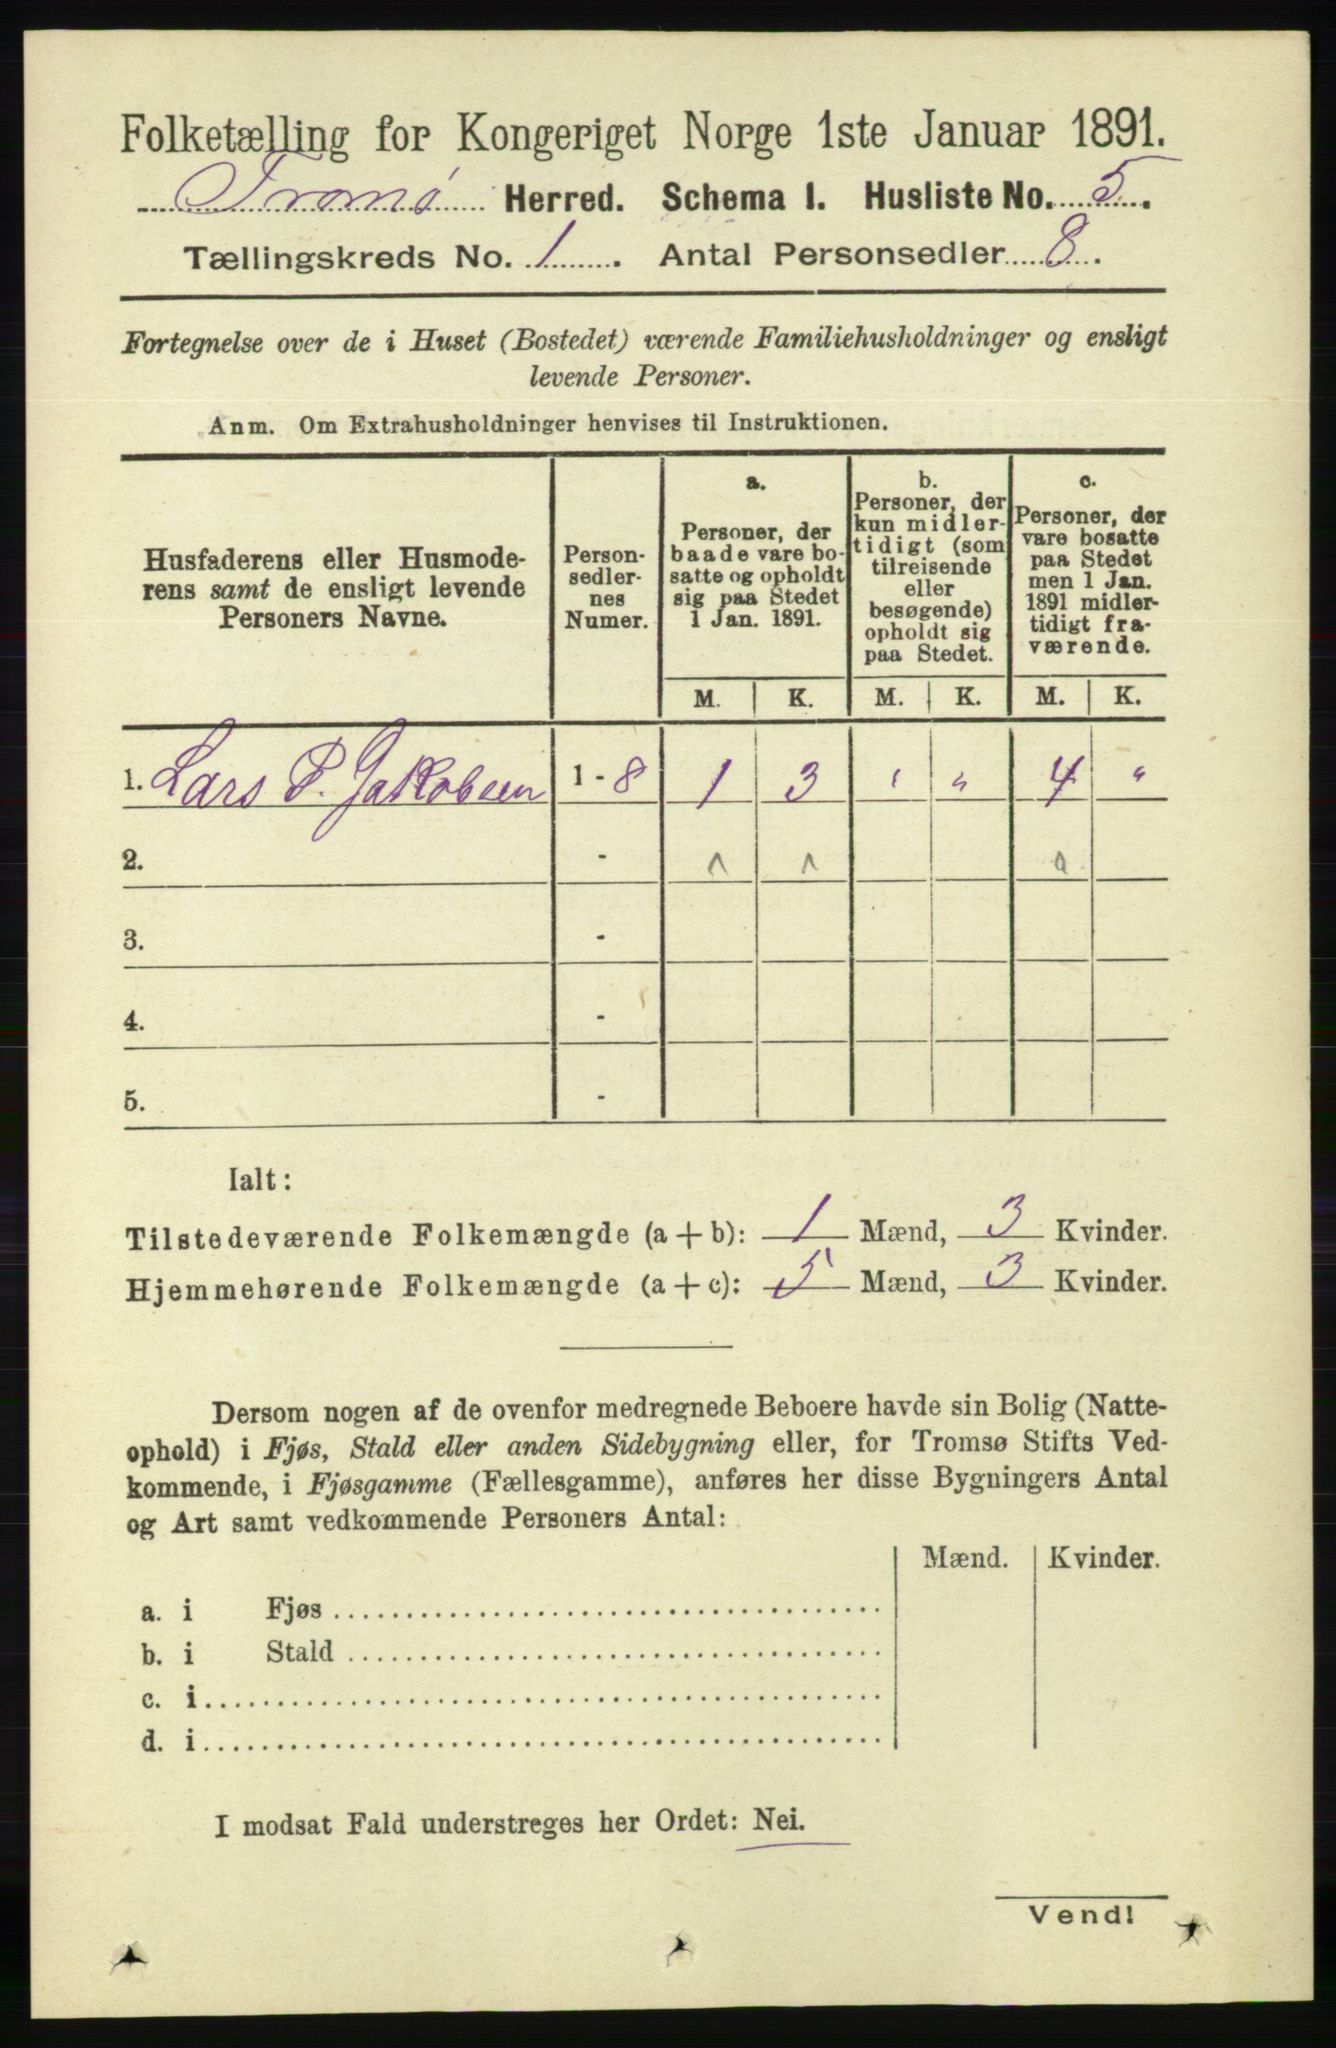 Folketælling for Kongeriget Norge 1ste Januar 1891.
Tromø Herred. Schema I. Husliste No. 5.
Tællingskreds No. 1. Antal Personsedler 8.
Fortegnelse over de i Huset (Bostedet) værende Familiehusholdninger og ensligt
levende Personer.
Anm. Om Extrahusholdninger henvises til Instruktionen.
Husfaderens eller Husmode-
rens samt de ensligt levende
Personers Navne.
Person-
sedler-
nes
Numer.
a.
Personer, der
baade vare bo-
satte og opholdt
sig paa Stedet
1 Jan. 1891.
b.
Personer, der
kun midler-
tidigt (som
tilreisende
eller
besøgende)
opholdt sig
paa Stedet.
c.
Personer, der
vare bosatte
paa Stedet
men 1 Jan.
1891 midler-
tidigt fra-
værende.
M. K. M. K. M. K.
1. Lars P. Jakobsen 1 - 8 1 3 " " 4 "
2. -
3. -
4. -
5. -
Ialt:
Tilstedeværende Folkemængde (a + b): 1 Mænd, 3 Kvinder.
Hjemmehørende Folkemængde (a + c): 5 Mænd, 3 Kvinder.
Dersom nogen af de ovenfor medregnede Beboere havde sin Bolig (Natte-
ophold) i Fjøs, Stald eller anden Sidebygning eller, for Tromsø Stifts Ved-
kommende, i Fjøsgamme (Fællesgamme), anføres her disse Bygningers Antal
og Art samt vedkommende Personers Antal:
Mænd. Kvinder.
a. i Fjøs
b. i Stald
c. i
d. i
I modsat Fald understreges her Ordet: Nei.
Vend!